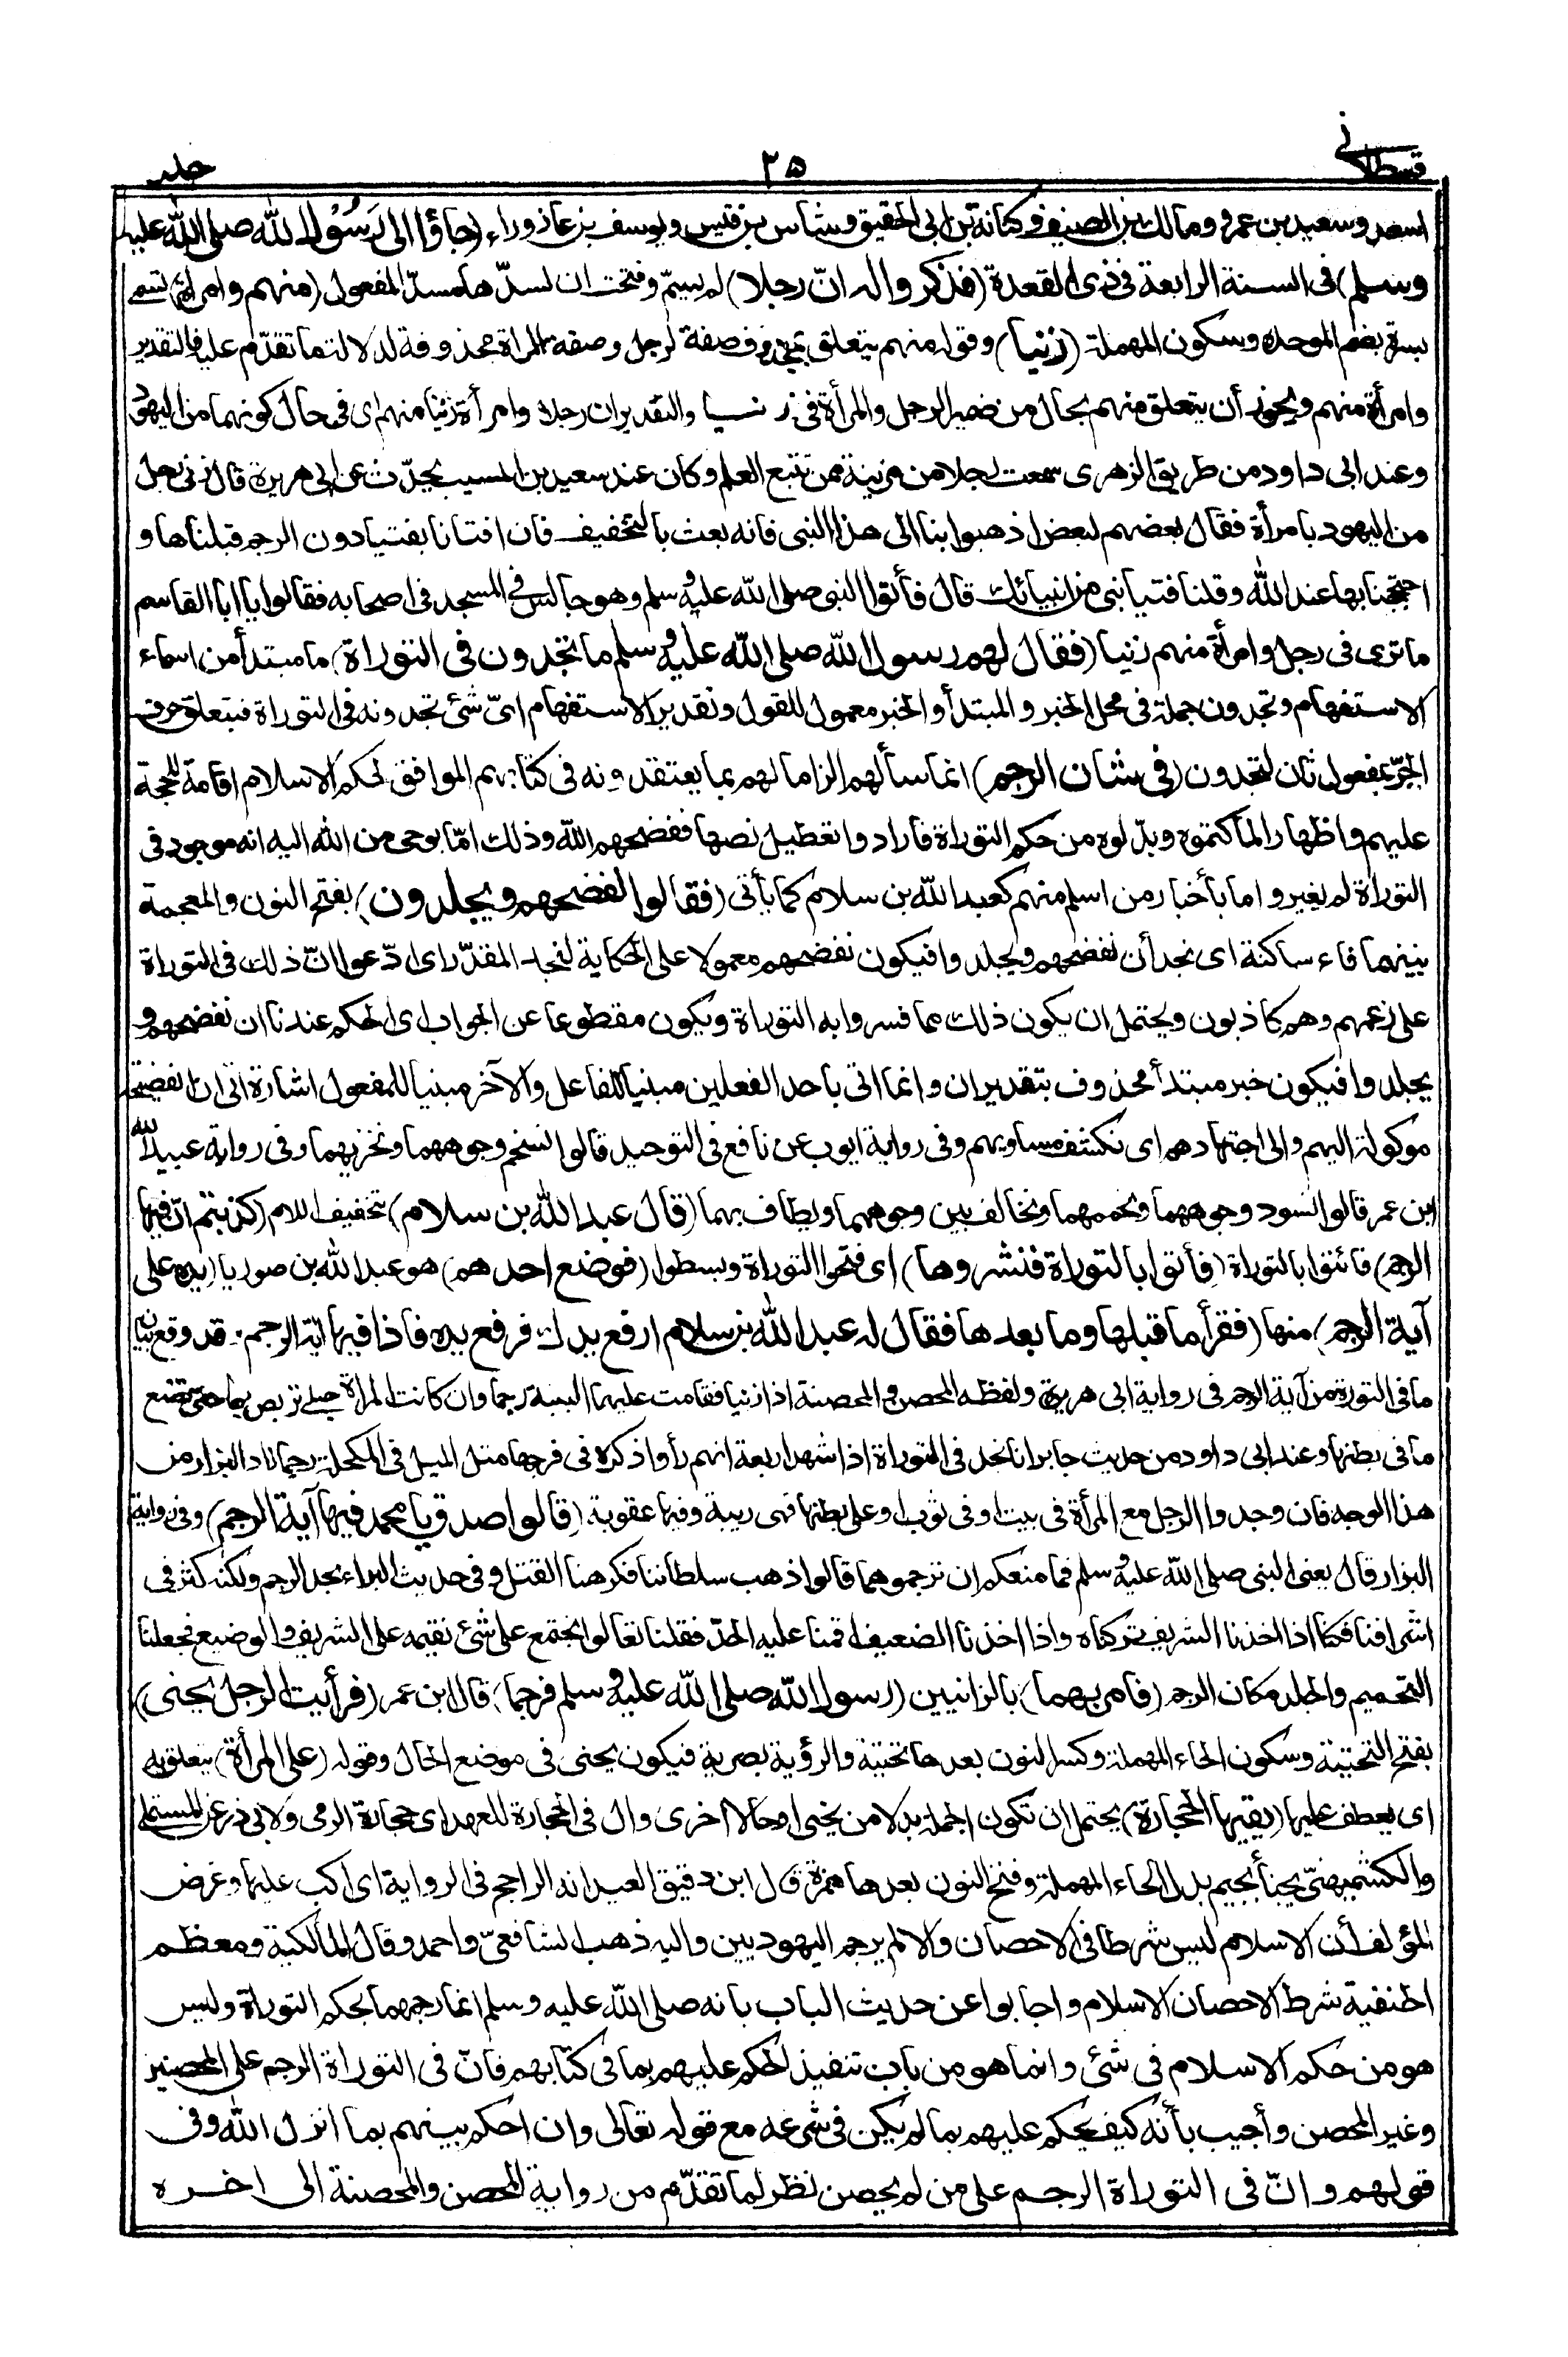 قسطلانى
٢٥
جلد
اسعد وسعيد بن عمرو ومالك بن الصيف وكنانة بن ابى الحقيق وشاس بن قيس ويوسف بن عازوراء (جاؤا الى رسول الله صلى الله عليه
وسلم) فى السنة الرابعة فى ذى القعدة (فذكروا له ان رجلا) لم يسمّ وفتحت ان لسدّها مسدّ المفعول (منهم وامرأة) تسمى
بسرة بضم الموحدة وسكون المهملة (زنيا) وقوله منهم يتعلق بمحذوف صفة لرجل وصفة المرأة محذوفة لدلالة ما تقدّم عليه فالتقدير
وامرأة منهم ويجوز أن يتعلق منهم بحال من ضمير الرجل والمرأة فى زنيا والتقدير ان رجلا وامرأة زنيا منهم اى فى حال كونهما من اليهود
وعند ابى داود من طريق الزهرى سمعت رجلا من مزينة ممن تتبع العلم وكان عند سعيد بن المسيب يحدّث عن ابى هريرة قال زنى رجل
من اليهود بامرأة فقال بعضهم لبعض اذهبوا بنا الى هذا النبى فانه بعث بالتخفيف فان افتانا بفتيا دون الرجم قبلناها و
احتججنا بها عند الله وقلنا فتيا نبى من انبيائك قال فأتوا النبى صلى الله عليه وسلم وهو جالس فى المسجد فى اصحابه فقالوا يا ابا القاسم
ما ترى فى رجل وامرأة منهم زنيا (فقال لهم رسول الله صلى الله عليه وسلم ما تجدون فى التوراة) ما مبتدأ من اسماء
الاستفهام وتجدون جملة فى محل الخبر والمبتدأ والخبر معمول للقول وتقدير الاستفهام اىّ شئ تجدونه فى التوراة فيتعلق حرف
الجرّ بمفعول ثان لتجدون (فى شان الرجم) انما سألهم الزاما لهم بما يعتقدونه فى كتابهم الموافق لحكم الاسلام اقامة للحجة
عليهم واظهارا لما كتموه وبدّلوه من حكم التوراة فارادوا تعطيل نصها ففضحهم الله وذلك امّا بوحى من الله اليه انه موجود فى
التوراة لم يغير واما بأخبار من اسلم منهم كعبد الله بن سلام كما يأتى (فقالوا نفضحهم ويجلدون) بفتح النون والمعجمة
بينهما فاء ساكنة اى نجد أن نفضحهم ويجلدوا فيكون نفضحهم معمولا على الحكاية لنجد المقدّر اى ادّعوا انّ ذلك فى التوراة
على زعمهم وهم كاذبون ويحتمل ان يكون ذلك مما فسروا به التوراة ويكون مقطوعا عن الجواب اى الحكم عندنا ان نفضحهم و
يجلدوا فيكون خبر مبتدأ محذوف بتقدير ان وانما اتى باحد الفعلين مبنيا للفاعل والآخر مبنيا للمفعول اشارة الى ان الفضيحة
موكولة اليهم والى اجتهادهم اى نكشف مساويهم وفى رواية ايوب عن نافع فى التوحيد قالوا نسخم وجوههما ونخزيهما وفى رواية عبيد الله
ابن عمر قالوا نسود وجوههما ونحممهما ونخالف بين وجوههما ويطاف بهما (قال عبد الله بن سلام) بتخفيف اللام (كذبتم انّ فيها
الرجم) فائتوا بالتوراة (فأتوا بالتوراة فنشروها) اى فتحوا التوراة وبسطوا (فوضع احدهم) هو عبد الله بن صوريا (يده على
آية الرجم) منها (فقرأ ما قبلها وما بعدها فقال له عبد الله بن سلام ارفع يدك فرفع يده فاذا فيها آية الرجم. قد وقع بيان
ما فى التورة من آية الرجم فى رواية ابى هريرة ولفظه المحصن والمحصنة اذا زنيا فقامت عليهما البينة رجما وان كانت المرأة حبلى تربص بها حتى تضع
ما فى بطنها وعند ابى داود من حديث جابر انا نجد فى التوراة اذا شهد اربعة انهم رأوا ذكره فى فرجها مثل الميل فى المكحلة رجما زاد البزار من
هذا الوجه فان وجدوا الرجل مع المرأة فى بيت او فى ثوب او على بطنها فهى ريبة وفيها عقوبة (قالوا صدق يا محمد فيها آية الرجم) وفى رواية
البزار قال يعنى النبى صلى الله عليه وسلم فما منعكم ان ترجموهما قالوا ذهب سلطاننا فكرهنا القتل وفى حديث البراء نجد الرجم ولكنه كثر فى
اشرافنا فكنا اذا اخذنا الشريف تركناه واذا اخذنا الضعيف اقمنا عليه الحدّ فقلنا تعالوا نجتمع على شئ نقيمه على الشريف والوضيع فجعلنا
التحميم والجلد مكان الرجم (فامر بهما) بالزانيين (رسول الله صلى الله عليه وسلم فرجما) قال ابن عمر (فرأيت الرجل يحنى)
بفتح التحتية وسكون الحاء المهملة وكسر النون بعدها تحتية والرؤية بصرية فيكون يحنى فى موضع الحال وقوله (على المرأة) يتعلق به
اى يعطف عليها (يقيها الحجارة) يحتمل ان تكون الجملة بدلا من يحنى او حالا اخرى وال فى الحجارة للعهد اى حجارة الرمى ولابى ذر عن المستملى
والكشميهنىّ يجنأ بجيم بدل الحاء المهملة وفتح النون بعدها همزة قال ابن دقيق العيد انه الراجح فى الرواية اى اكب عليها وغرض
المؤلف أن الاسلام ليس شرطا فى الاحصان والا لم يرجم اليهوديين واليه ذهب الشافعىّ واحمد وقال المالكية ومعظم
الحنفية شرط الاحصان الاسلام واجابوا عن حديث الباب بانه صلى الله عليه وسلم انما رجمهما بحكم التوراة وليس
هو من حكم الاسلام فى شئ وانما هو من باب تنفيذ الحكم عليهم بما فى كتابهم فانّ فى التوراة الرجم على المحصن
وغير المحصن وأجيب بأنه كيف يحكم عليهم بما لم يكن فى شرعه مع قوله تعالى وان احكم بينهم بما انزل الله وفى
قولهم وانّ فى التوراة الرجم على من لم يحصن نظر لما تقدّم من رواية المحصن والمحصنة الى اخره